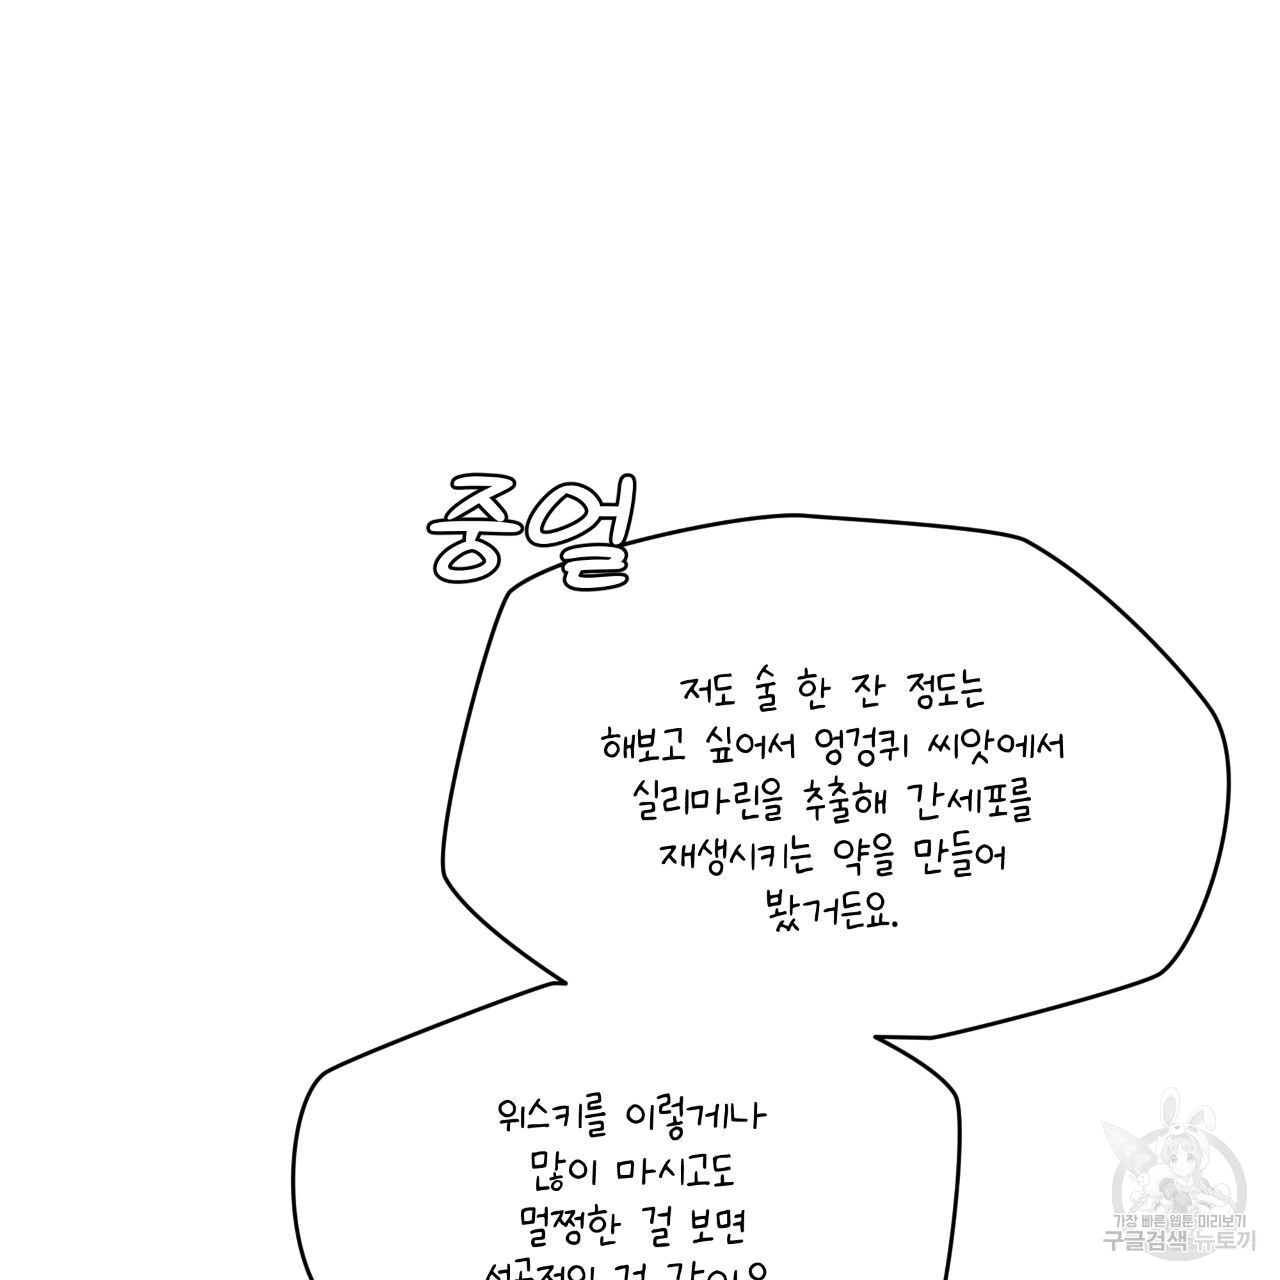 중얼
저도 술 한 잔 정도는
해보고 싶어서 엉겅퀴 씨앗에서
실리마린을 추출해 간세포를
재생시키는 약을 만들어
봤거든요.
위스키를 이렇게나
많이 마시고도
멀쩡한 걸 보면
성공적인 것 같아요
가장 빠른 웹툰 미리보기
구글검색 뉴토끼